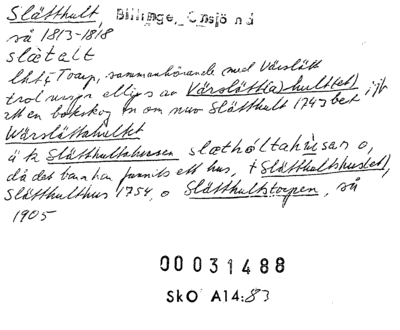 Slätthult, Billinge, Onsjö hd
så 1813-1818
slætalt
lht, Torup, sammanhörande med Vårslätt
trol urspr ellips av Vårslätt(a)hult(et)
ett en bokskog om nuv Slätthult 1747 bet
Wårslättahultet
ä k Slätthultahusen slætholtahúsan o,
då det bara har funnits ett hus, +Slätthultshuset,
Slätthulthus 1754, o Slätthultstorpen, så
1905
00031488
SkO A14:83